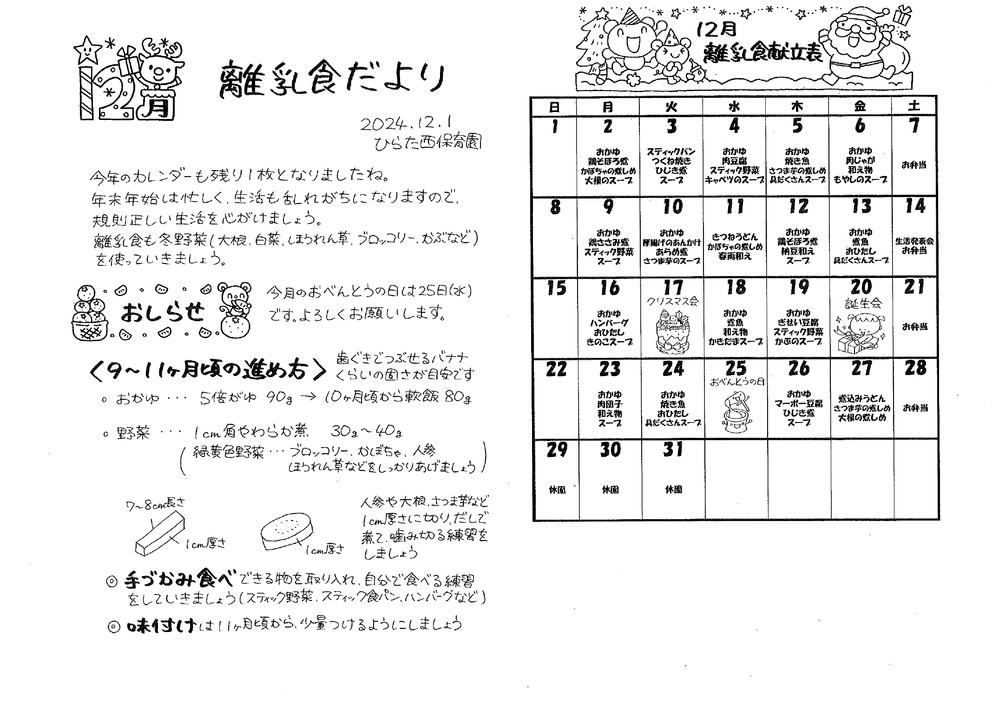 12月
離乳食だより
2024.12.1
ひらた西保育園
今年のカレンダーも残り1枚となりましたね。
年末年始は忙しく、生活も乱れがちになりますので、
規則正しい生活を心がけましょう。
離乳食も冬野菜(大根、白菜、ほうれん草、ブロッコリー、かぶなど)
を使っていきましょう。
おしらせ
今月のおべんとうの日は25日(水)
です。よろしくお願いします。
〈9〜11ヶ月頃の進め方〉
歯ぐきでつぶせるバナナ
くらいの固さが目安です
。おかゆ ··· 5倍がゆ 90g → 10ヶ月頃から軟飯 80g
。野菜 ··· 1cm角やわらか煮 30g〜40g
(緑黄色野菜···ブロッコリー、かぼちゃ、人参
ほうれん草などをしっかりあげましょう)
7〜8cm長さ
1cm厚さ
1cm厚さ
人参や大根、さつま芋など
1cm厚さに切り、だしで
煮て、噛み切る練習を
しましょう
◎ 手づかみ食べできる物を取り入れ、自分で食べる練習
をしていきましょう(スティック野菜、スティック食パン、ハンバーグなど)
◎ 味付けは11ヶ月頃から、少量つけるようにしましょう
12月
離乳食献立表
日 月 火 水 木 金 土
1
2
おかゆ
鶏そぼろ煮
かぼちゃの煮しめ
大根のスープ
3
スティックパン
つくね焼き
ひじき煮
スープ
4
おかゆ
肉豆腐
スティック野菜
キャベツのスープ
5
おかゆ
焼き魚
さつま芋の煮しめ
具だくさんスープ
6
おかゆ
肉じゃが
和え物
もやしのスープ
7
お弁当
8
9
おかゆ
鶏ささみ煮
スティック野菜
スープ
10
おかゆ
厚揚げのあんかけ
あらめ煮
さつま芋のスープ
11
きつねうどん
かぼちゃの煮しめ
春雨和え
12
おかゆ
鶏そぼろ煮
納豆和え
スープ
13
おかゆ
煮魚
おひたし
具だくさんスープ
14
生活発表会
お弁当
15
16
おかゆ
ハンバーグ
おひたし
きのこスープ
17
クリスマス会
18
おかゆ
煮魚
和え物
かきたまスープ
19
おかゆ
ぎせい豆腐
スティック野菜
かぶのスープ
20
誕生会
21
お弁当
22
23
おかゆ
肉団子
和え物
スープ
24
おかゆ
焼き魚
おひたし
具だくさんスープ
25
おべんとうの日
26
おかゆ
マーボー豆腐
ひじき煮
スープ
27
煮込みうどん
さつま芋の煮しめ
大根の煮しめ
28
お弁当
29
休園
30
休園
31
休園